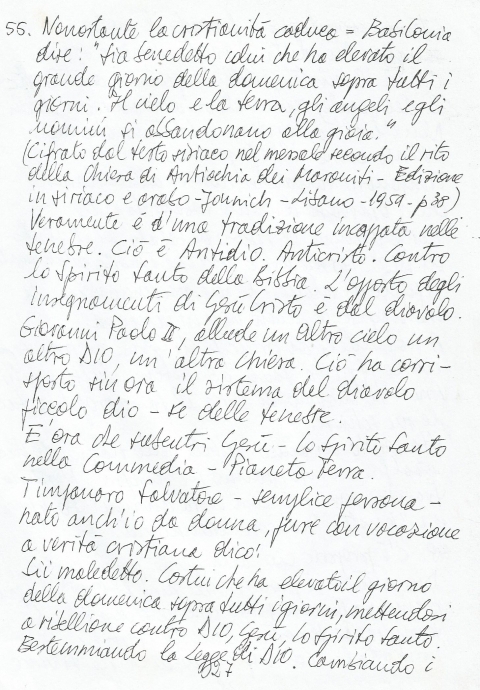 55. Nonostante la cristianità caduca = Basilonia
dire: "Sia benedetto colui che ha elevato il
grande giorno della domenica sopra tutti i
giorni. Il cielo e la terra, gli angeli e gli
uomini si abbandonano alla gioia."
(Cifrato dal testo siriaco nel messale secondo il rito
della Chiesa di Antiochia dei Maroniti - Edizione
in siriaco e arabo - Jounich - Libano - 1959 - p 38)
Veramente é d'una tradizione incappata nelle
tenebre. Ciò è Antidio. Anticristo. Contro
lo Spirito Santo della Bibbia. L'opposto degli
insegnamenti di Gesù Cristo è dal diavolo.
Giovanni Paolo II, allude un altro cielo un
altro DIO, un'altra chiesa. Ciò ha corri-
sposto sin ora il sistema del diavolo
piccolo dio - re delle tenebre.
É ora che subentri Gesù - lo Spirito Santo
nella Commedia - Pianeta Terra.
Timpanaro Salvatore - semplice persona -
nato anch'io da donna, pure con vocazione
a verità cristiana dico!
Sii maledetto. Costui che ha elevato il giorno
della domenica sopra tutti i giorni, mettendosi
a ribellione contro DIO, Gesù, lo Spirito Santo.
Bestemmiando la Legge di DIO. Cambiando i
027